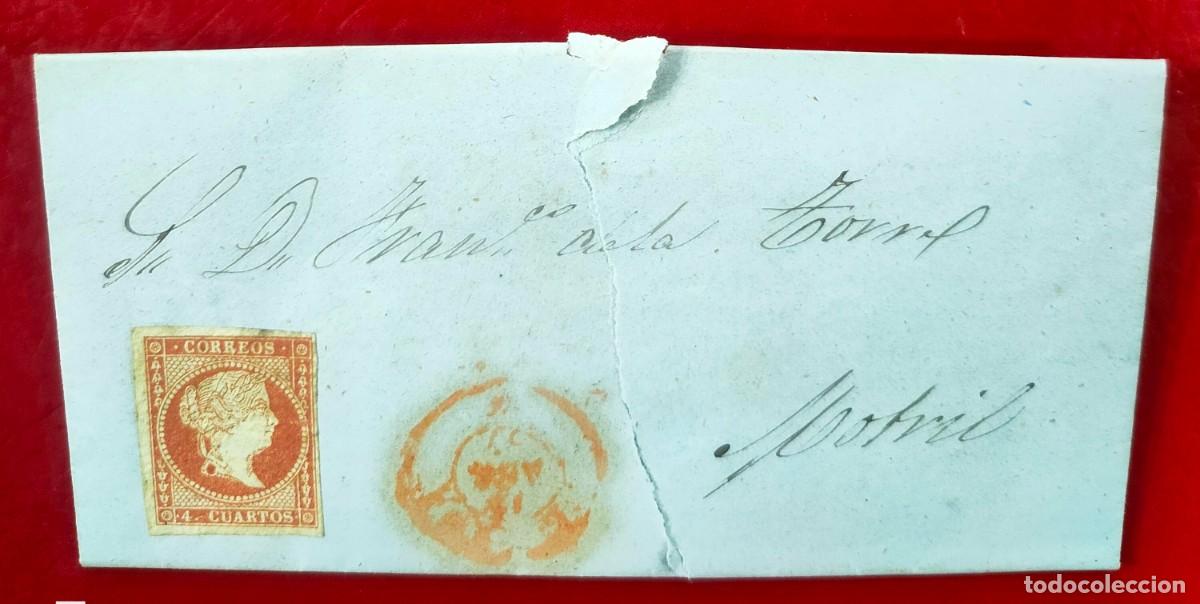 Sr. D. Franco. de la Torre
Motril
· CORREOS ·
· 4 · CUARTOS ·
todocoleccion